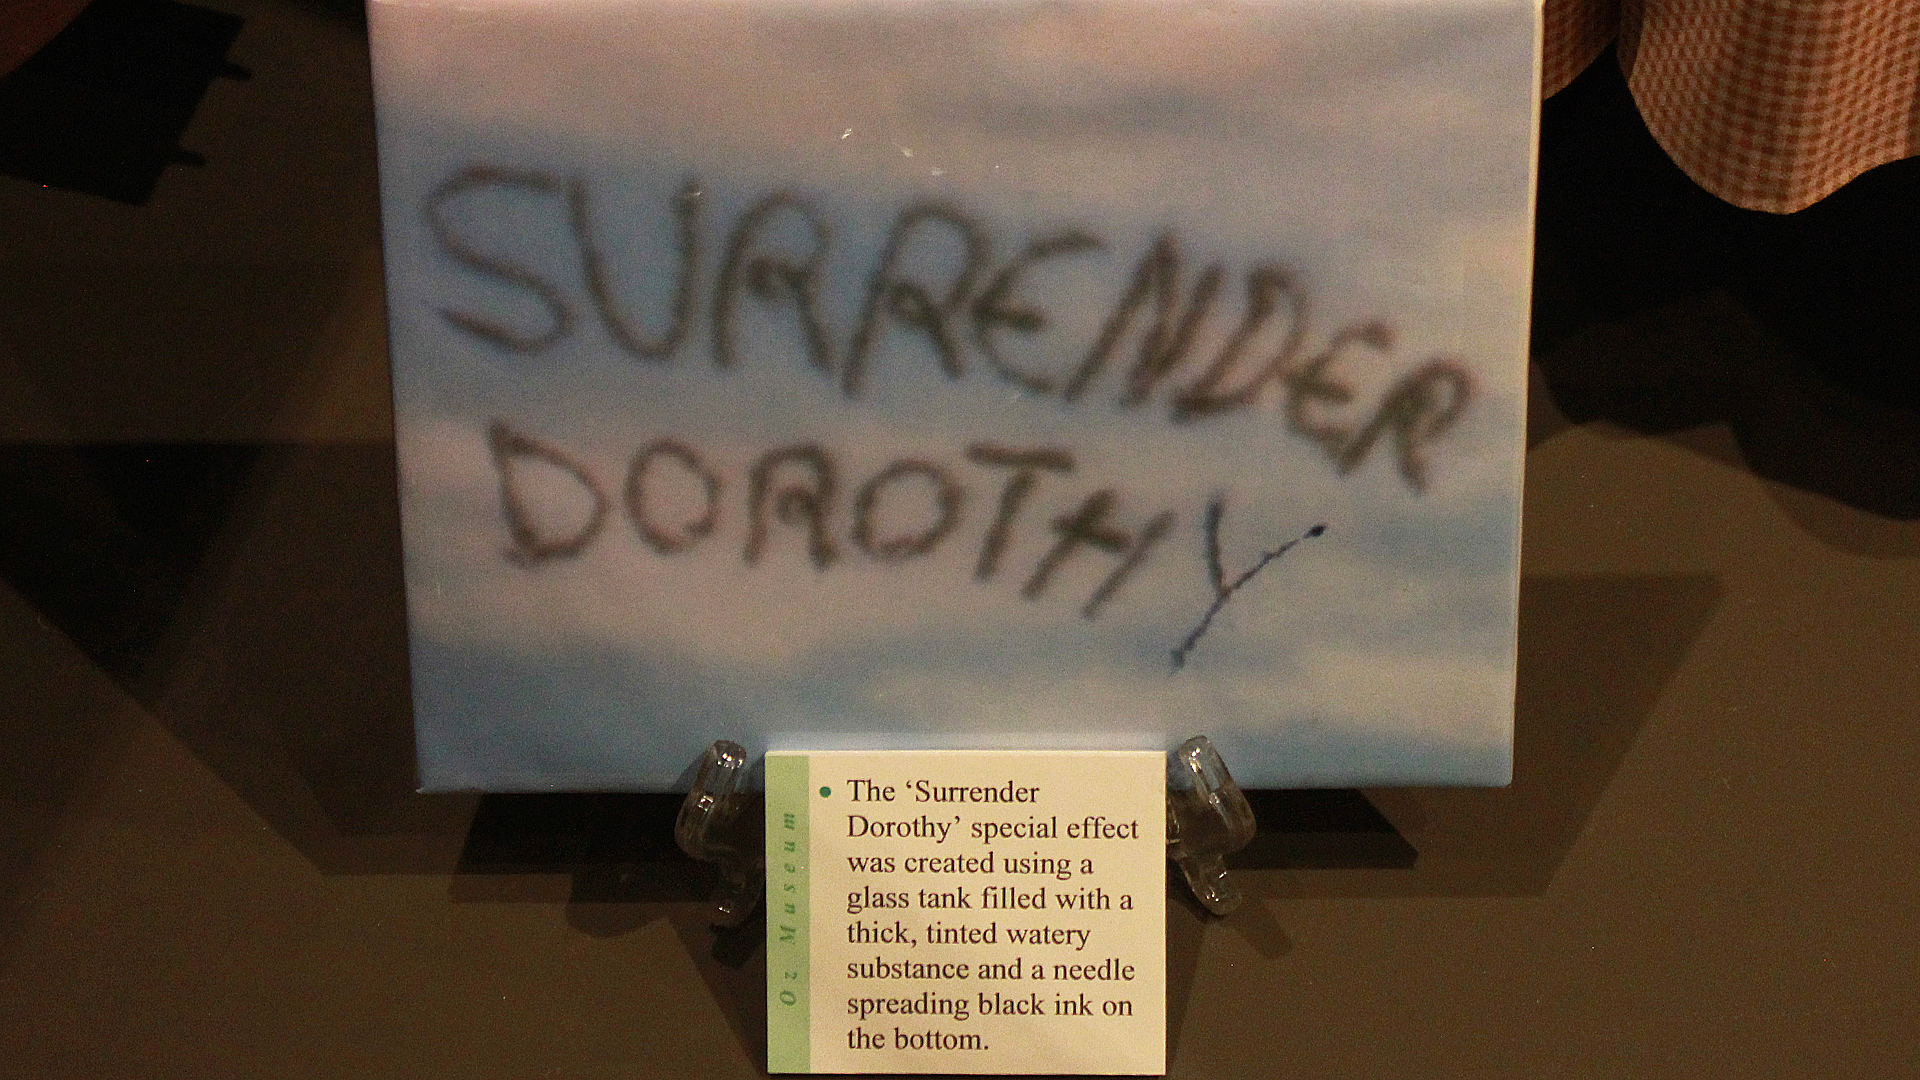 SURRENDER
DOROTHY
Oz Museum
• The ‘Surrender
Dorothy’ special effect
was created using a
glass tank filled with a
thick, tinted watery
substance and a needle
spreading black ink on
the bottom.